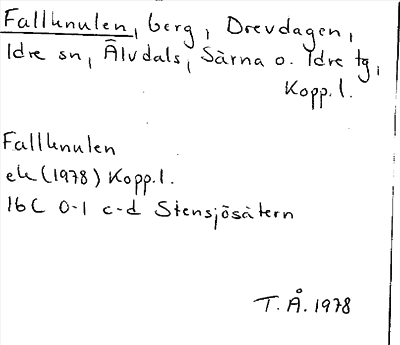 Fallknulen, berg, Drevdagen,
Idre sn, Älvdals, Särna o. Idre tg,
Kopp.l.
Fallknulen
ek (1978) Kopp.l.
16C 0-1 c-d Stensjösätern
T.Å. 1978